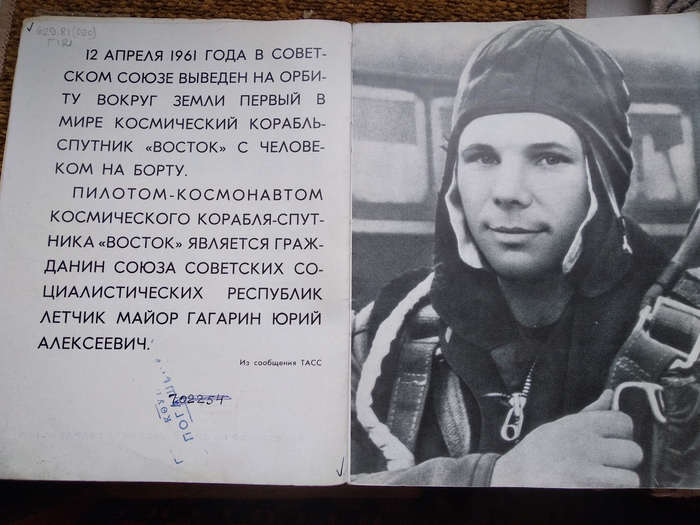 629.81(090)
12 АПРЕЛЯ 1961 ГОДА В СОВЕТ-
СКОМ СОЮЗЕ ВЫВЕДЕН НА ОРБИ-
ТУ ВОКРУГ ЗЕМЛИ ПЕРВЫЙ В
МИРЕ КОСМИЧЕСКИЙ КОРАБЛЬ-
СПУТНИК «ВОСТОК» С ЧЕЛОВЕ-
КОМ НА БОРТУ.
ПИЛОТОМ-КОСМОНАВТОМ
КОСМИЧЕСКОГО КОРАБЛЯ-СПУТ-
НИКА «ВОСТОК» ЯВЛЯЕТСЯ ГРАЖ-
ДАНИН СОЮЗА СОВЕТСКИХ СО-
ЦИАЛИСТИЧЕСКИХ РЕСПУБЛИК
ЛЕТЧИК МАЙОР ГАГАРИН ЮРИЙ
АЛЕКСЕЕВИЧ.
Из сообщения ТАСС
702254